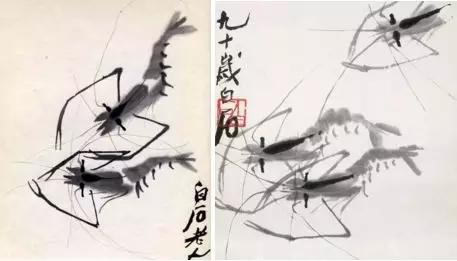 白石老人
九十歲白石